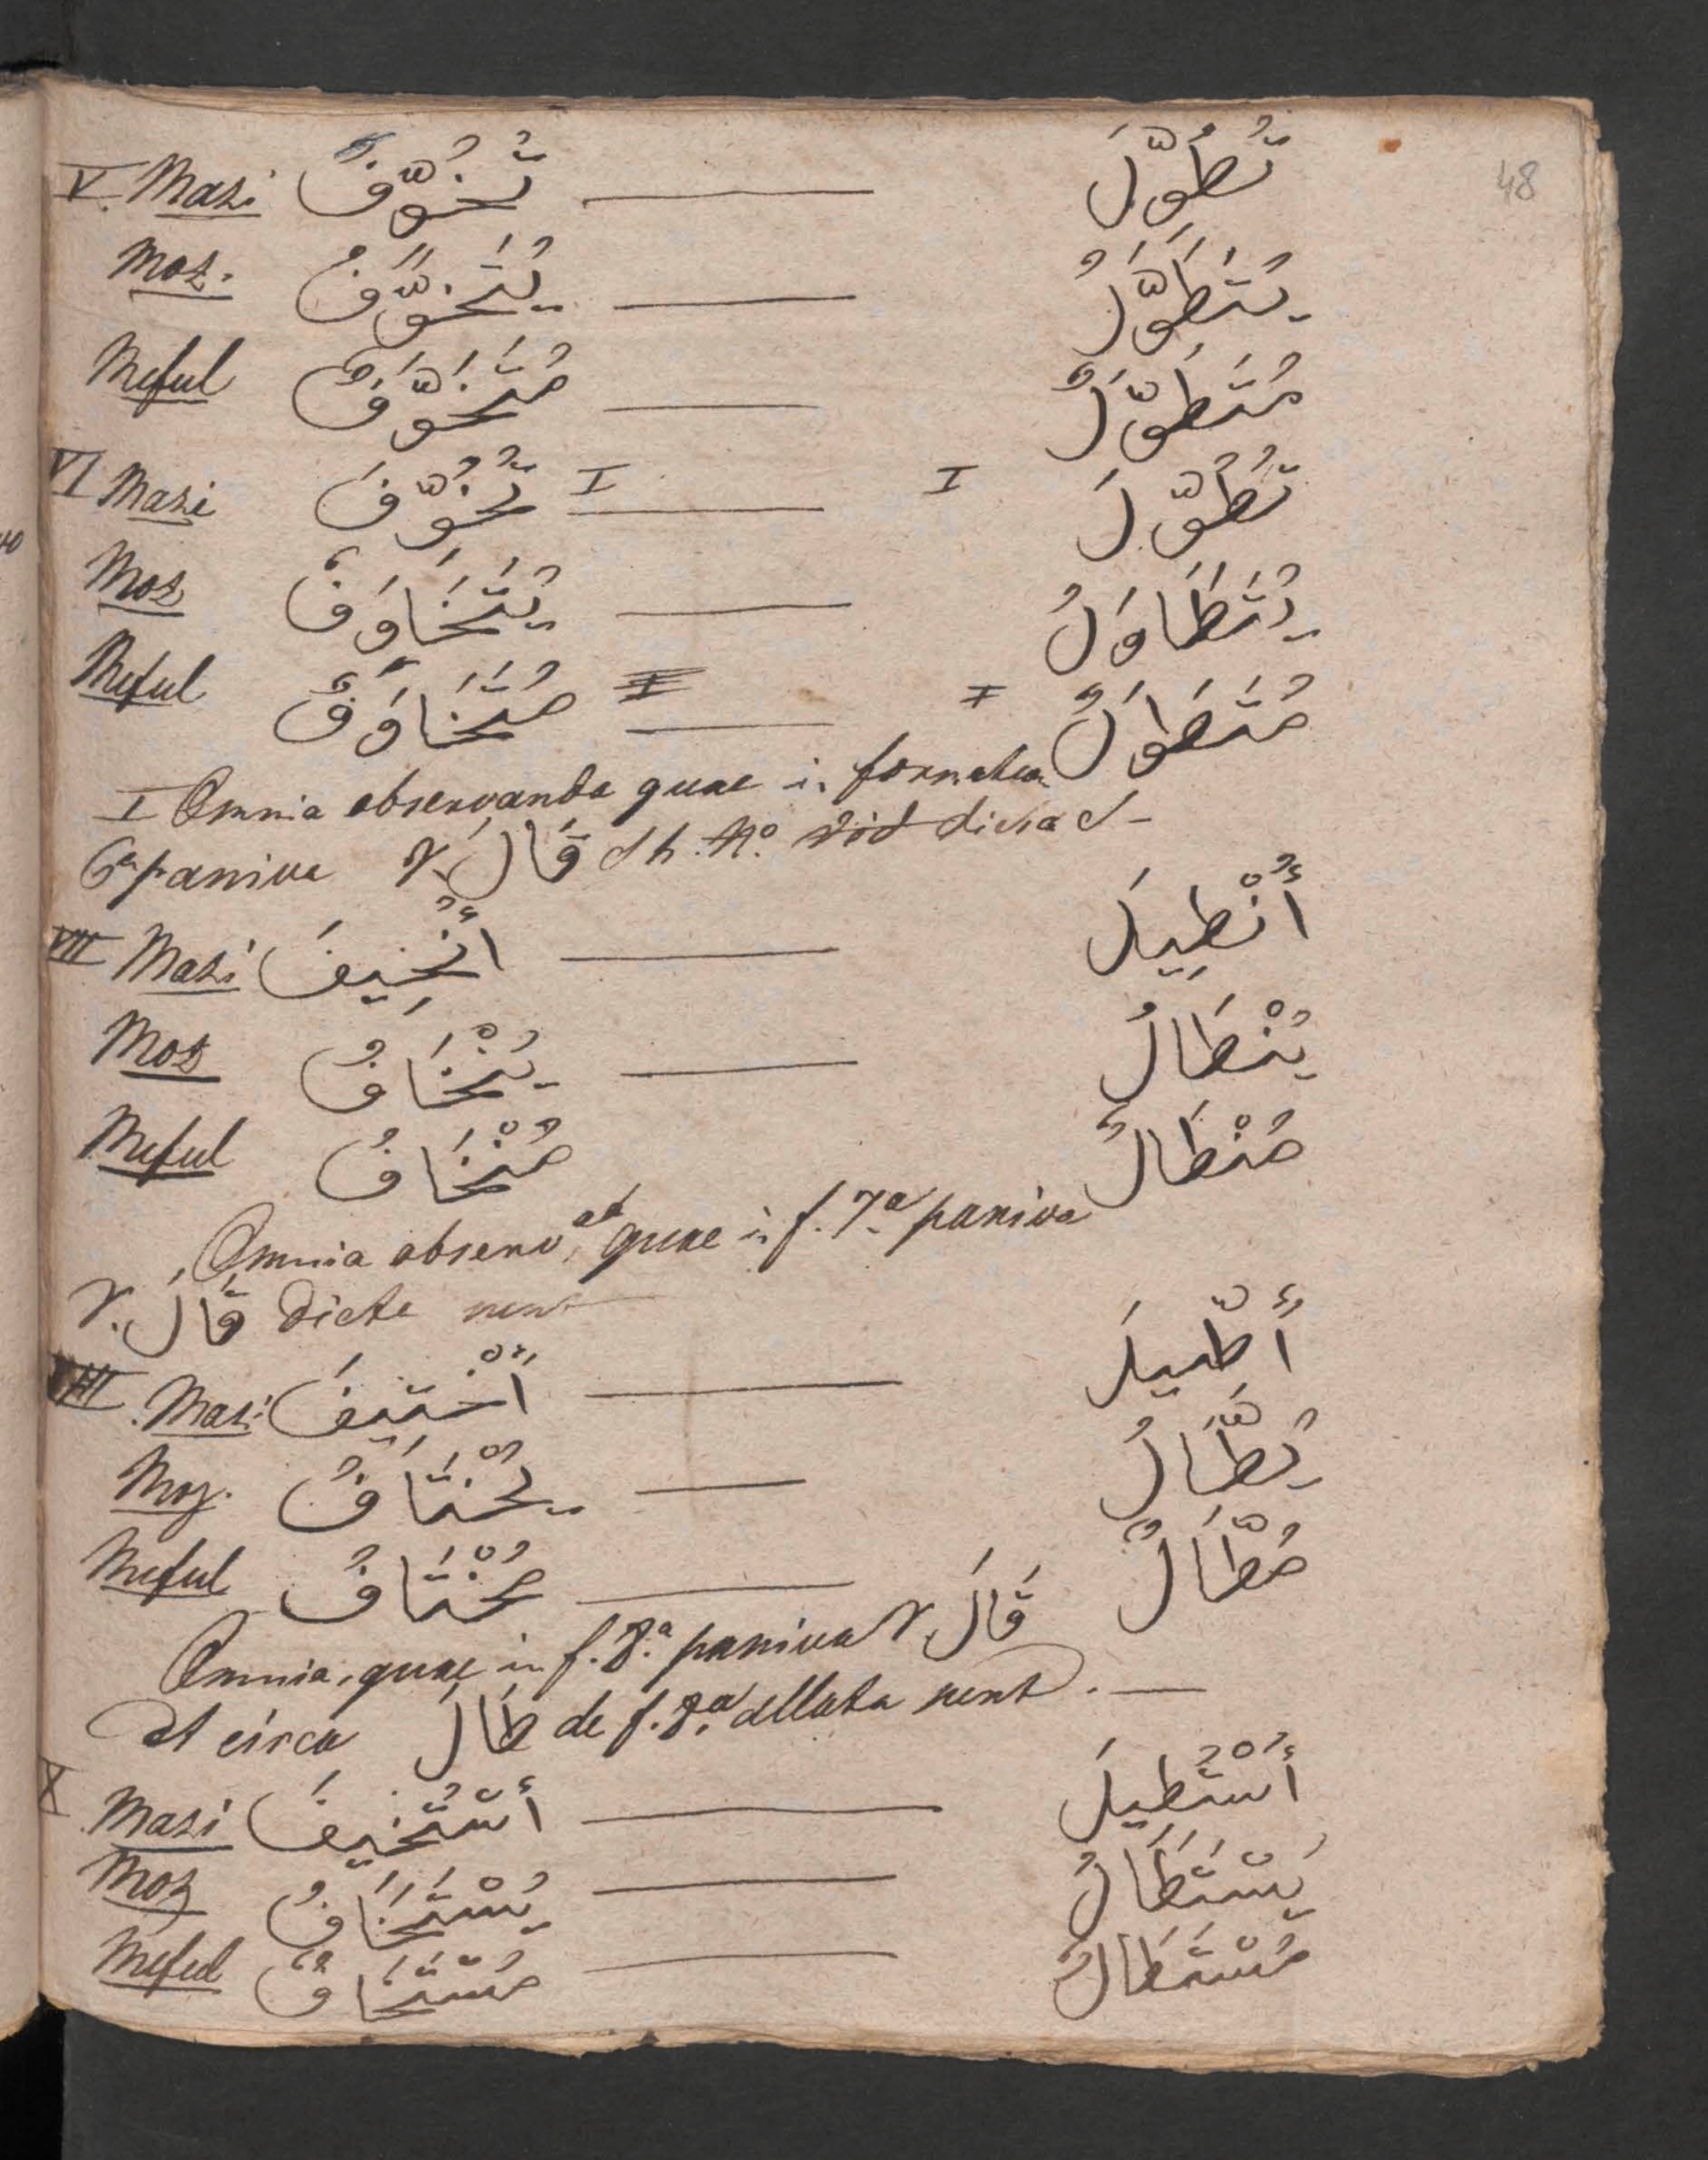 48
V. Mazi تُخُوِّفَ — تُطُوِّلَ
Moz. يُتَخَوَّفُ — يُتَطَوَّلُ
Meful مُتَخَوَّفٌ — مُتَطَوَّلٌ
VI Mazi تُخُوِّفَ I — I تُطُوِّلَ
Moz يُتَخَاوَفُ — يُتَطَاوَلُ
Meful مُتَخَاوَفٌ I — I مُتَطَوَلٌ
I Omnia observanda quae in
6ae passivae v. قَالَ
VII Mazi أُنْخِيفَ — أُنْطِيلَ
Moz يُنْخَافُ — يُنْطَالُ
Meful مُنْخَافُ — مُنْطَالٌ
Omnia quae in f. 7a passiva
v. قَالَ dicta sunt
VIII. Mazi أُخْتِيفَ — أُطِّيلَ
Moz. يُخْتَافُ — يُطَّالُ
Meful مُخْتَافُ — مُطَّالٌ
Omnia, quae in f. 8.a passiva v. قَالَ
et circa طَالَ de f. 8.a allata sunt. —
X Mazi أُسْتُخِيفَ — أُسْتُطِيلَ
Moz يُسْتَخَافُ — يُسْتَطَالُ
Meful مُسْتَخَافٌ — مُسْتَطَالٌ